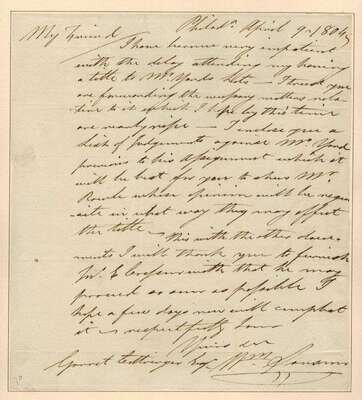 Philada April 9th 1804
My Friend
I have become very impatient
with the delay attending my having
a title to Mr. Yards lots – I trust you
are forwarding the necessary matters rela-
tive to it which I hope by this time
are nearly ripe – I inclose you a
list of Judgements against Mr. Yard
previous to his Assignment which it
will be best for you to shew Mr.
Rawle whose opinion will be requi-
site in what way they may affect
the title – This with the other docu-
ments I will thank you to furnish
with that he may
proceed as soon as possible I
hope a few days now will compleat
it – respectfully I am
Yours &c
Garret Cottringer Esq. Wm.